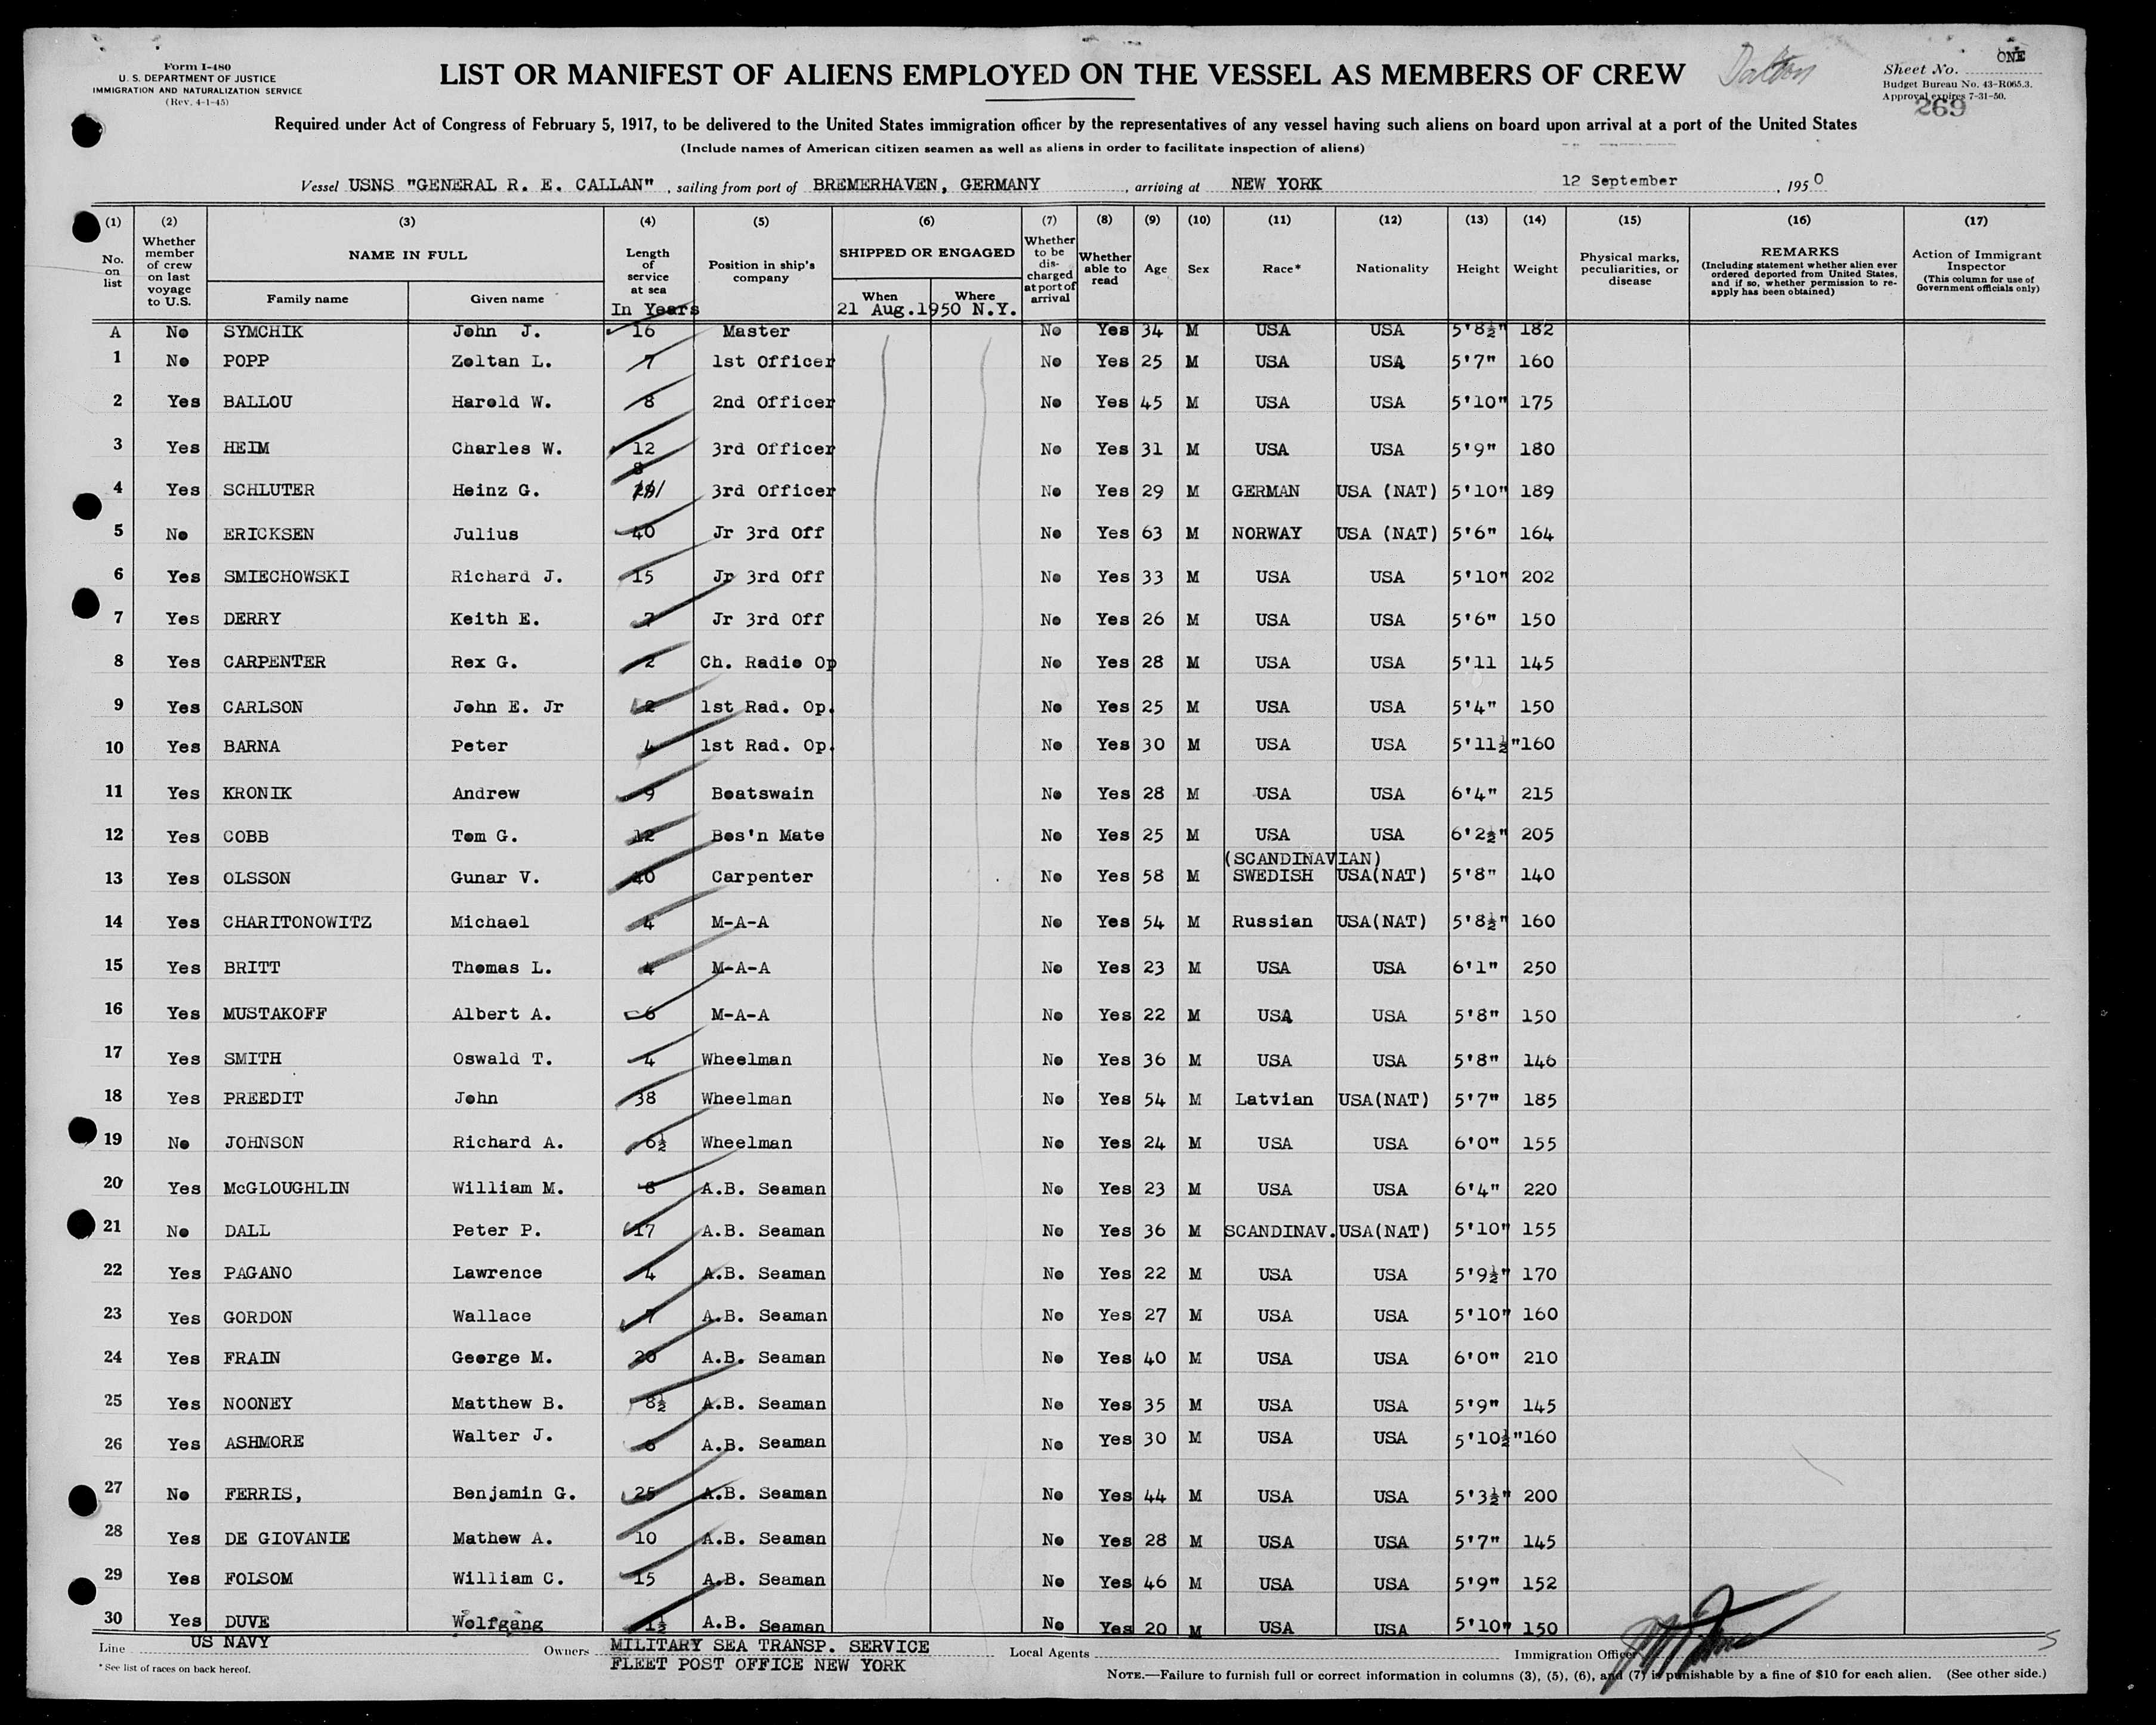 Form I-480
U. S. DEPARTMENT OF JUSTICE
IMMIGRATION AND NATURALIZATION SERVICE
(Rev. 4-1-45)
LIST OR MANIFEST OF ALIENS EMPLOYED ON THE VESSEL AS MEMBERS OF CREW
Dalton
Sheet No. ONE
Budget Bureau No. 43-R065.3.
Approval expires 7-31-50.
269
Required under Act of Congress of February 5, 1917, to be delivered to the United States immigration officer by the representatives of any vessel having such aliens on board upon arrival at a port of the United States
(Include names of American citizen seamen as well as aliens in order to facilitate inspection of aliens)
Vessel USNS "GENERAL R. E. CALLAN" , sailing from port of BREMERHAVEN, GERMANY , arriving at NEW YORK 12 September , 1950
(1) (2) (3) (4) (5) (6) (7) (8) (9) (10) (11) (12) (13) (14) (15) (16) (17)
No. on list
Whether member of crew on last voyage to U.S.
NAME IN FULL
Family name Given name
Length of service at sea
In Years
Position in ship's company
SHIPPED OR ENGAGED
When Where
21 Aug.1950 N.Y.
Whether to be discharged at port of arrival
Whether able to read
Age
Sex
Race*
Nationality
Height
Weight
Physical marks, peculiarities, or disease
REMARKS
(Including statement whether alien ever ordered deported from United States, and if so, whether permission to reapply has been obtained)
Action of Immigrant Inspector
(This column for use of Government officials only)
A No SYMCHIK John J. 16 Master No Yes 34 M USA USA 5'8½" 182
1 No POPP Zoltan L. 7 1st Officer No Yes 25 M USA USA 5'7" 160
2 Yes BALLOU Harold W. 8 2nd Officer No Yes 45 M USA USA 5'10" 175
3 Yes HEIM Charles W. 12 3rd Officer No Yes 31 M USA USA 5'9" 180
4 Yes SCHLUTER Heinz G. 8 3rd Officer No Yes 29 M GERMAN USA (NAT) 5'10" 189
5 No ERICKSEN Julius 40 Jr 3rd Off No Yes 63 M NORWAY USA (NAT) 5'6" 164
6 Yes SMIECHOWSKI Richard J. 15 Jr 3rd Off No Yes 33 M USA USA 5'10" 202
7 Yes DERRY Keith E. 7 Jr 3rd Off No Yes 26 M USA USA 5'6" 150
8 Yes CARPENTER Rex G. 2 Ch. Radio Op No Yes 28 M USA USA 5'11 145
9 Yes CARLSON John E. Jr 2 1st Rad. Op. No Yes 25 M USA USA 5'4" 150
10 Yes BARNA Peter 4 1st Rad. Op. No Yes 30 M USA USA 5'11½" 160
11 Yes KRONIK Andrew 9 Boatswain No Yes 28 M USA USA 6'4" 215
12 Yes COBB Tom G. 12 Bos'n Mate No Yes 25 M USA USA 6'2½" 205
(SCANDINAVIAN)
13 Yes OLSSON Gunar V. 40 Carpenter No Yes 58 M SWEDISH USA(NAT) 5'8" 140
14 Yes CHARITONOWITZ Michael 4 M-A-A No Yes 54 M Russian USA(NAT) 5'8½" 160
15 Yes BRITT Thomas L. 4 M-A-A No Yes 23 M USA USA 6'1" 250
16 Yes MUSTAKOFF Albert A. 6 M-A-A No Yes 22 M USA USA 5'8" 150
17 Yes SMITH Oswald T. 4 Wheelman No Yes 36 M USA USA 5'8" 146
18 Yes PREEDIT John 38 Wheelman No Yes 54 M Latvian USA(NAT) 5'7" 185
19 No JOHNSON Richard A. 6½ Wheelman No Yes 24 M USA USA 6'0" 155
20 Yes McGLOUGHLIN William M. 8 A.B. Seaman No Yes 23 M USA USA 6'4" 220
21 No DALL Peter P. 17 A.B. Seaman No Yes 36 M SCANDINAV. USA(NAT) 5'10" 155
22 Yes PAGANO Lawrence 4 A.B. Seaman No Yes 22 M USA USA 5'9½" 170
23 Yes GORDON Wallace 7 A.B. Seaman No Yes 27 M USA USA 5'10" 160
24 Yes FRAIN George M. 20 A.B. Seaman No Yes 40 M USA USA 6'0" 210
25 Yes NOONEY Matthew B. 8½ A.B. Seaman No Yes 35 M USA USA 5'9" 145
26 Yes ASHMORE Walter J. 6 A.B. Seaman No Yes 30 M USA USA 5'10½" 160
27 No FERRIS, Benjamin G. 25 A.B. Seaman No Yes 44 M USA USA 5'3½" 200
28 Yes DE GIOVANIE Mathew A. 10 A.B. Seaman No Yes 28 M USA USA 5'7" 145
29 Yes FOLSOM William C. 15 A.B. Seaman No Yes 46 M USA USA 5'9" 152
30 Yes DUVE Wolfgang 1½ A.B. Seaman No Yes 20 M USA USA 5'10" 150
Line US NAVY Owners MILITARY SEA TRANSP. SERVICE Local Agents Immigration Officer
FLEET POST OFFICE NEW YORK
*See list of races on back hereof.
NOTE.—Failure to furnish full or correct information in columns (3), (5), (6), and (7) is punishable by a fine of $10 for each alien. (See other side.)